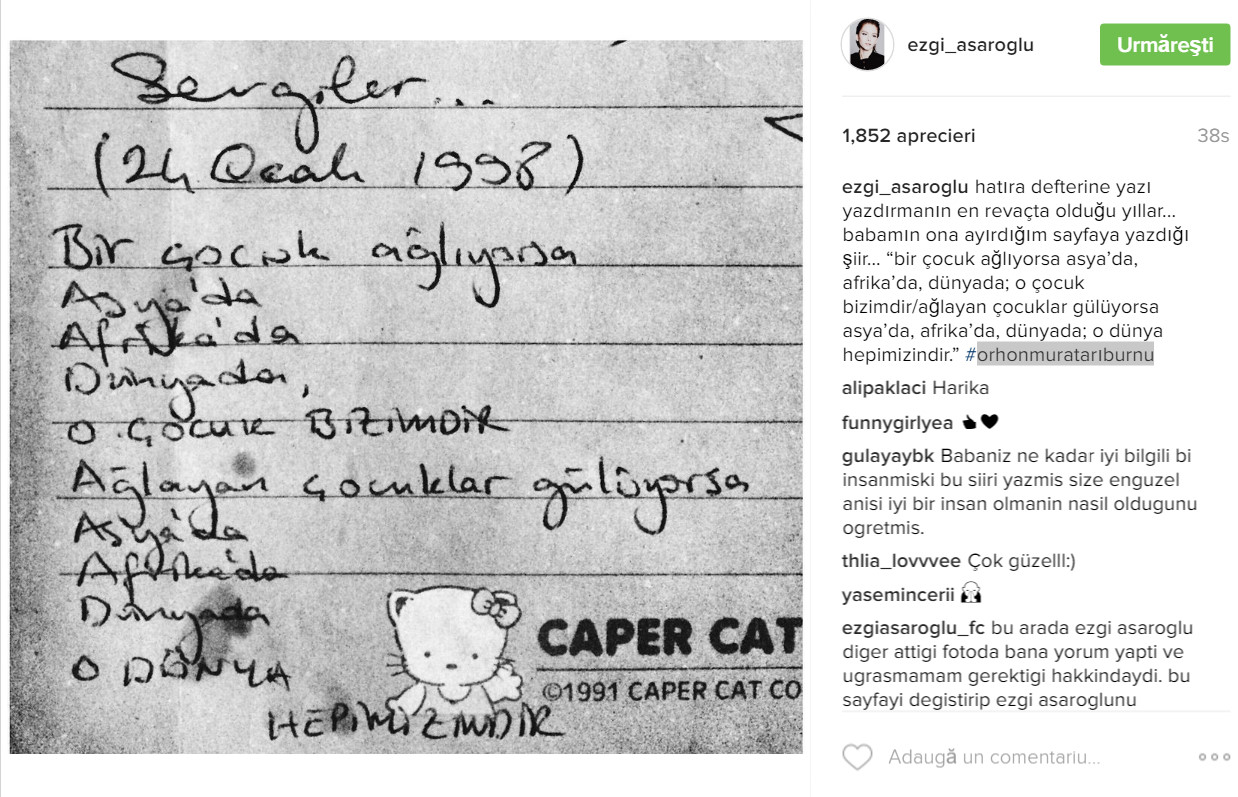 Sevgiler...
(24 Ocak 1998)
Bir çocuk ağlıyorsa
Asya'da
Afrika'da
Dünyada,
O çocuk BİZİMDİR
Ağlayan çocuklar gülüyorsa
Asya'da
Afrika'da
Dünyada
O DÜNYA
HEPİMİZİNDİR
CAPER CAT
©1991 CAPER CAT CO
ezgi_asaroglu
Urmărești
1,852 aprecieri
38s
ezgi_asaroglu hatıra defterine yazı
yazdırmanın en revaçta olduğu yıllar...
babamın ona ayırdığım sayfaya yazdığı
şiir... “bir çocuk ağlıyorsa asya’da,
afrika’da, dünyada; o çocuk
bizimdir/ağlayan çocuklar gülüyorsa
asya’da, afrika’da, dünyada; o dünya
hepimizindir.” #orhonmuratarıburnu
alipaklaci Harika
funnygirlyea
gulayaybk Babaniz ne kadar iyi bilgili bi
insanmiski bu siiri yazmis size enguzel
anisi iyi bir insan olmanin nasil oldugunu
ogretmis.
thlia_lovvvee Çok güzelll:)
yasemincerii
ezgiasaroglu_fc bu arada ezgi asaroglu
diger attigi fotoda bana yorum yapti ve
ugrasmamam gerektigi hakkindaydi. bu
sayfayi degistirip ezgi asaroglunu
Adaugă un comentariu...